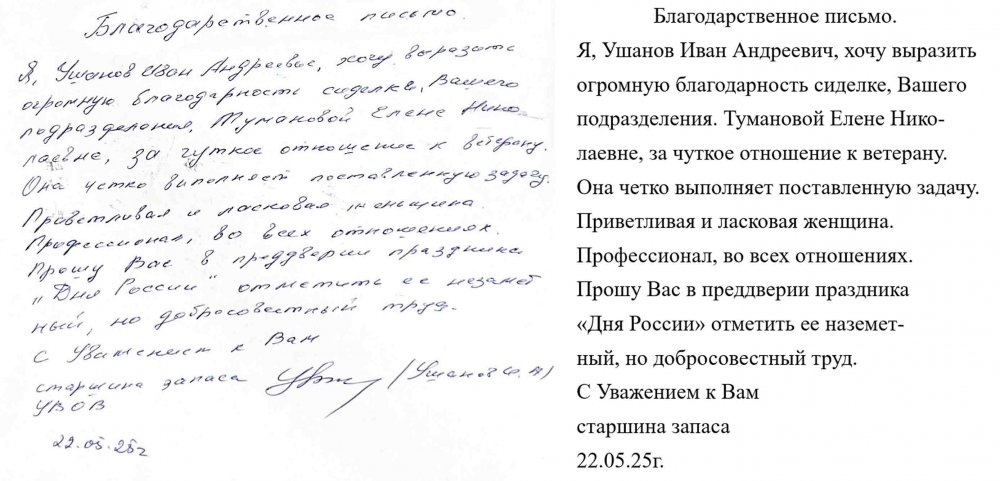 Благодарственное письмо.
Я, Ушанов Иван Андреевич, хочу выразить
огромную благодарность сиделке, Вашего
подразделения, Тумановой Елене Нико-
лаевне, за чуткое отношение к ветерану.
Она четко выполняет поставленную задачу.
Приветливая и ласковая женщина.
Профессионал, во всех отношениях.
Прошу Вас в преддверии праздника
„Дня России" отметить ее незамет
ный, но добросовестный труд.
С Уважением к Вам
старшина запаса (Ушанов И. А)
УВОВ
22.05.25г
Благодарственное письмо.
Я, Ушанов Иван Андреевич, хочу выразить
огромную благодарность сиделке, Вашего
подразделения. Тумановой Елене Нико-
лаевне, за чуткое отношение к ветерану.
Она четко выполняет поставленную задачу.
Приветливая и ласковая женщина.
Профессионал, во всех отношениях.
Прошу Вас в преддверии праздника
«Дня России» отметить ее наземет-
ный, но добросовестный труд.
С Уважением к Вам
старшина запаса
22.05.25г.